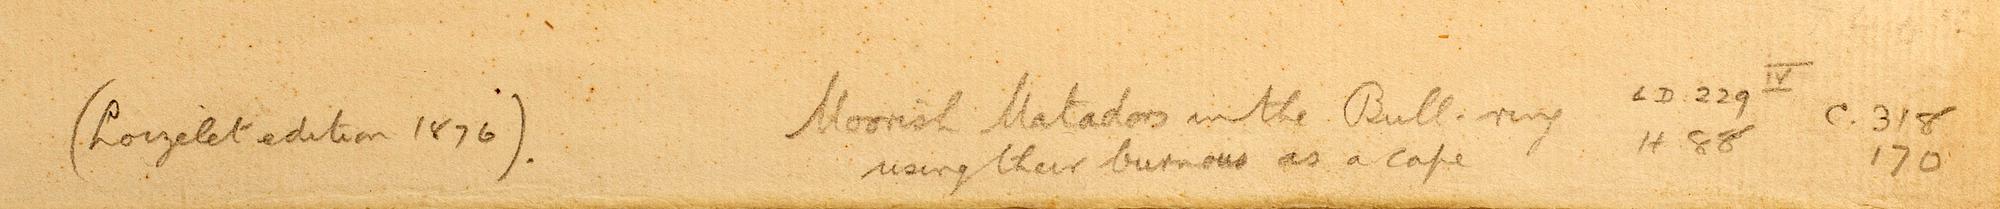 (Loizelet edition 1876).
Moorish Matadors in the Bull-ring
using their burnous as a cape
LD. 229 IV
H 88
C. 318
170